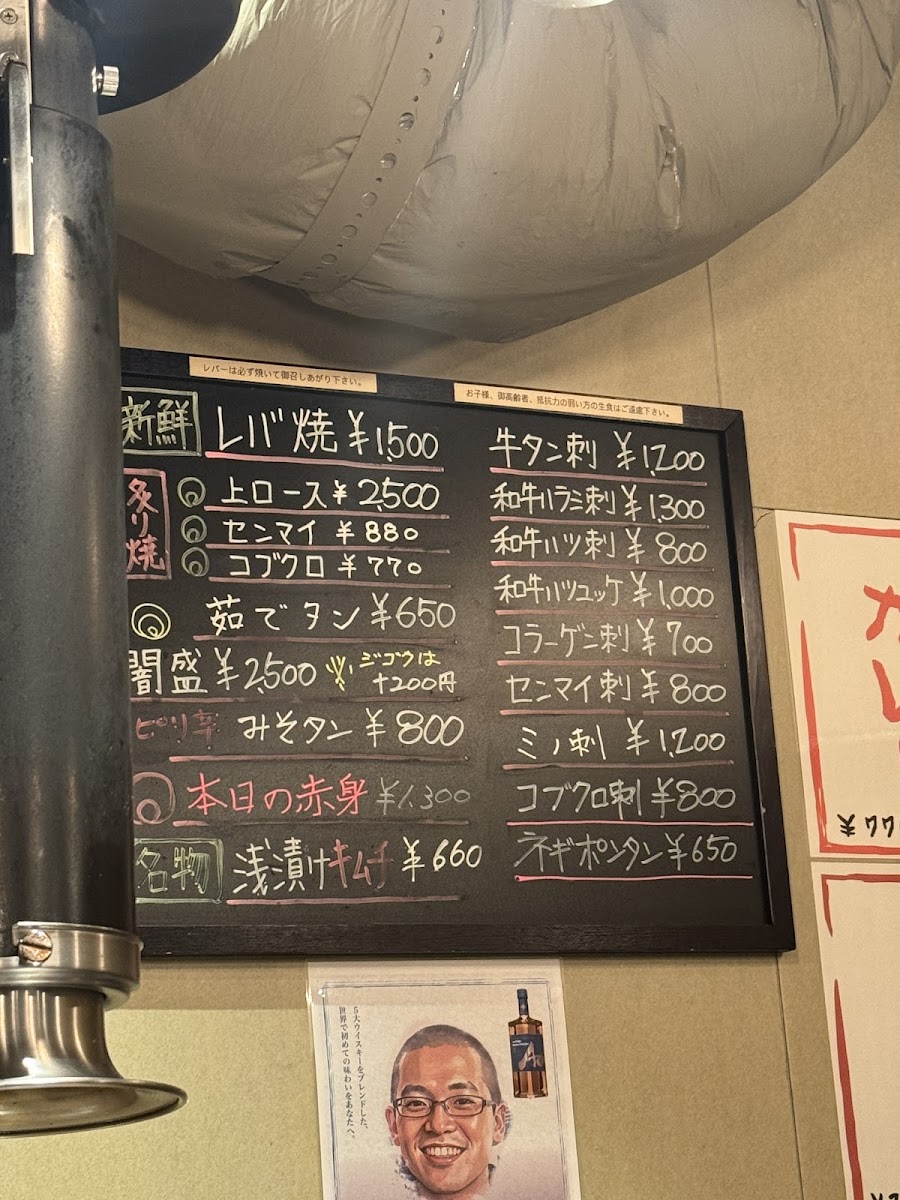 レバーは必ず焼いて御召しあがり下さい。
お子様、御高齢者、抵抗力の弱い方の生食はご遠慮下さい。
新鮮 レバ焼 ¥1,500
炙り焼
上ロース ¥2,500
センマイ ¥880
コブクロ ¥770
茹でタン ¥650
闇盛 ¥2,500 ジゴクは
+200円
ピリ辛 みそタン ¥800
本日の赤身 ¥1,300
名物 浅漬けキムチ ¥660
牛タン刺 ¥1,200
和牛ハラミ刺 ¥1,300
和牛ハツ刺 ¥800
和牛ハツユッケ ¥1,000
コラーゲン刺 ¥700
センマイ刺 ¥800
ミノ刺 ¥1,200
コブクロ刺 ¥800
ネギポンタン ¥650
¥77
5大ウイスキーをブレンドした、
世界で初めての味わいをあなたへ。